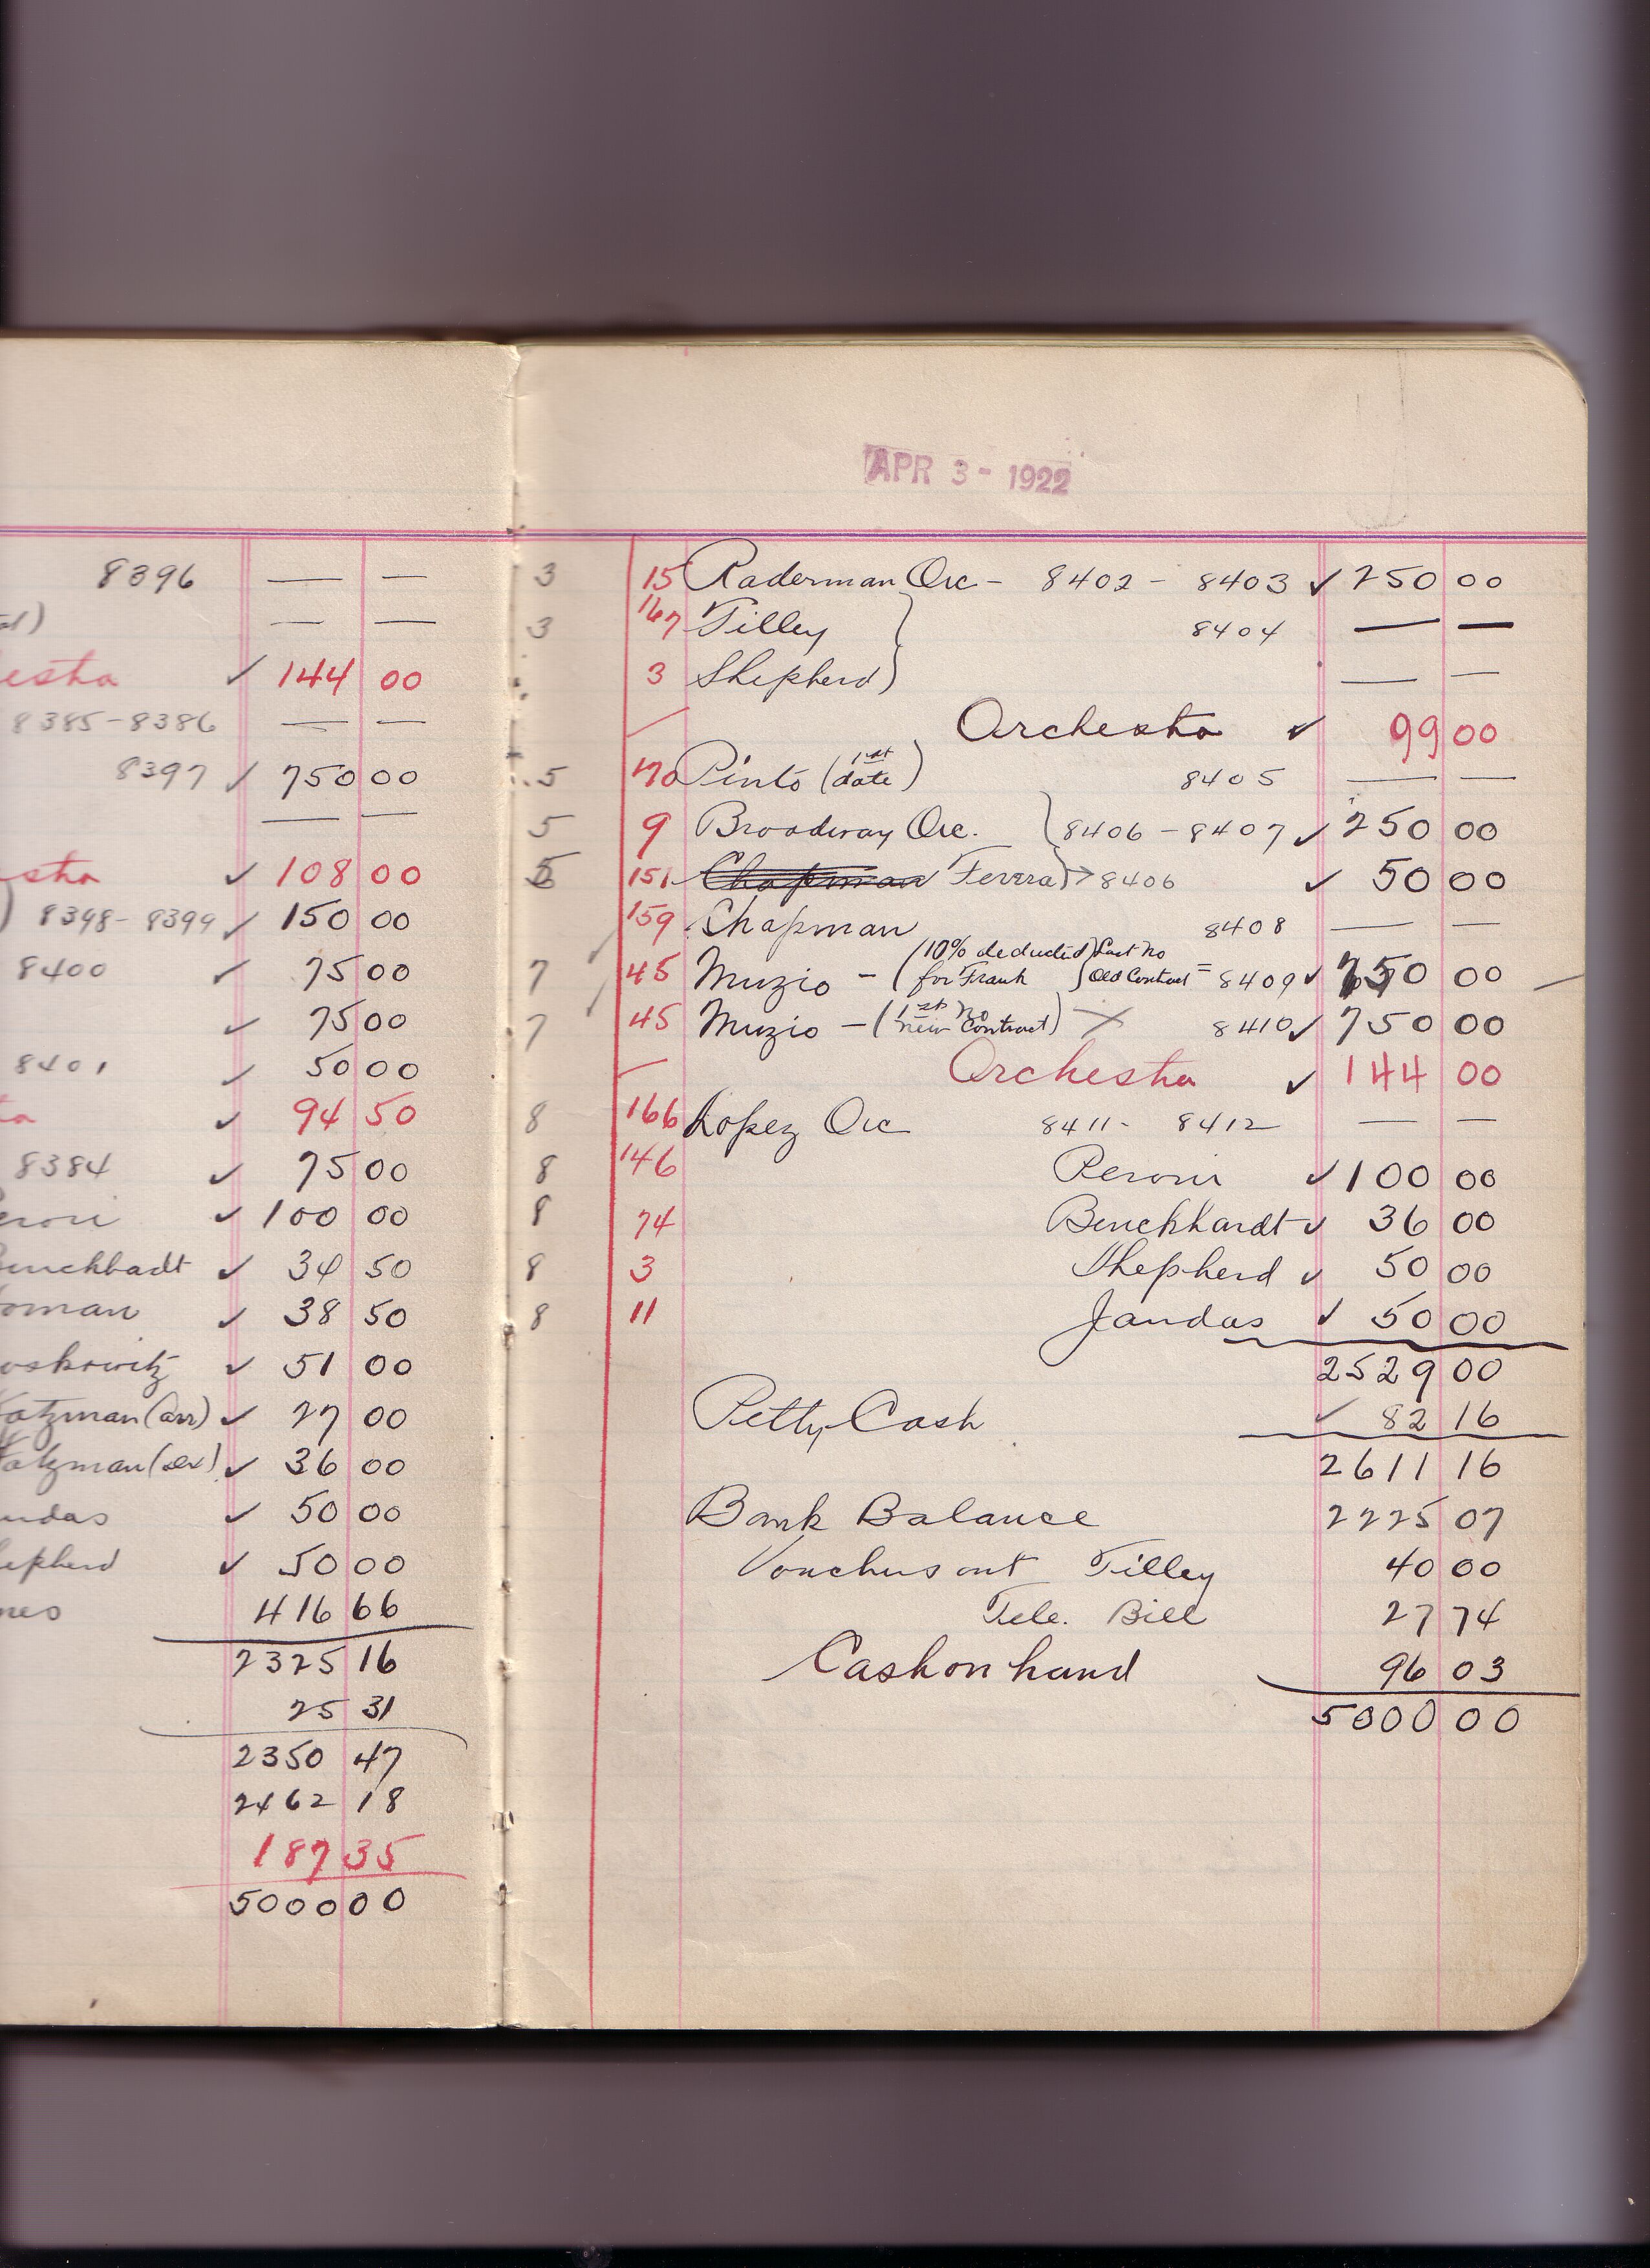 8396 — —
— —
✓ 144 00
8385-8386 — —
8397 ✓ 750 00
— —
✓ 108 00
) 8398-8399 ✓ 150 00
8400 ✓ 75 00
✓ 75 00
8401 ✓ 50 00
✓ 94 50
8384 ✓ 75 00
✓ 100 00
✓ 34 50
✓ 38 50
✓ 51 00
(arr) ✓ 27 00
✓ 36 00
✓ 50 00
✓ 50 00
416 66
2325 16
25 31
2350 47
2462 18
187 35
5000 00
APR 3 - 1922
3 15 Raderman Orc - 8402 - 8403 ✓ 250 00
3 167 Tilley } 8404 — —
3 Shepherd — —
Orchestra ✓ 99 00
5 170 Pinto (1st date) 8405 — —
5 9 Broadway Orc. } 8406 - 8407 ✓ 250 00
5 151 Chapman Ferera → 8406 ✓ 50 00
159 Chapman 8408 — —
7 45 Muzio - (10% deducted for Frank } Last No Old Contract = 8409 ✓ 750 00
7 45 Muzio - (1st No new Contract) X 8410 ✓ 750 00
— Orchestra ✓ 144 00
8 166 Lopez Orc 8411- 8412 — —
8 146 Peroni ✓ 100 00
8 74 Burckhardt ✓ 36 00
8 3 Shepherd ✓ 50 00
8 11 Jaudas ✓ 50 00
2529 00
Petty Cash ✓ 82 16
2611 16
Bank Balance 2225 07
Vouchers out Tilley 40 00
Tele. Bill 27 74
Cash on hand 96 03
5000 00